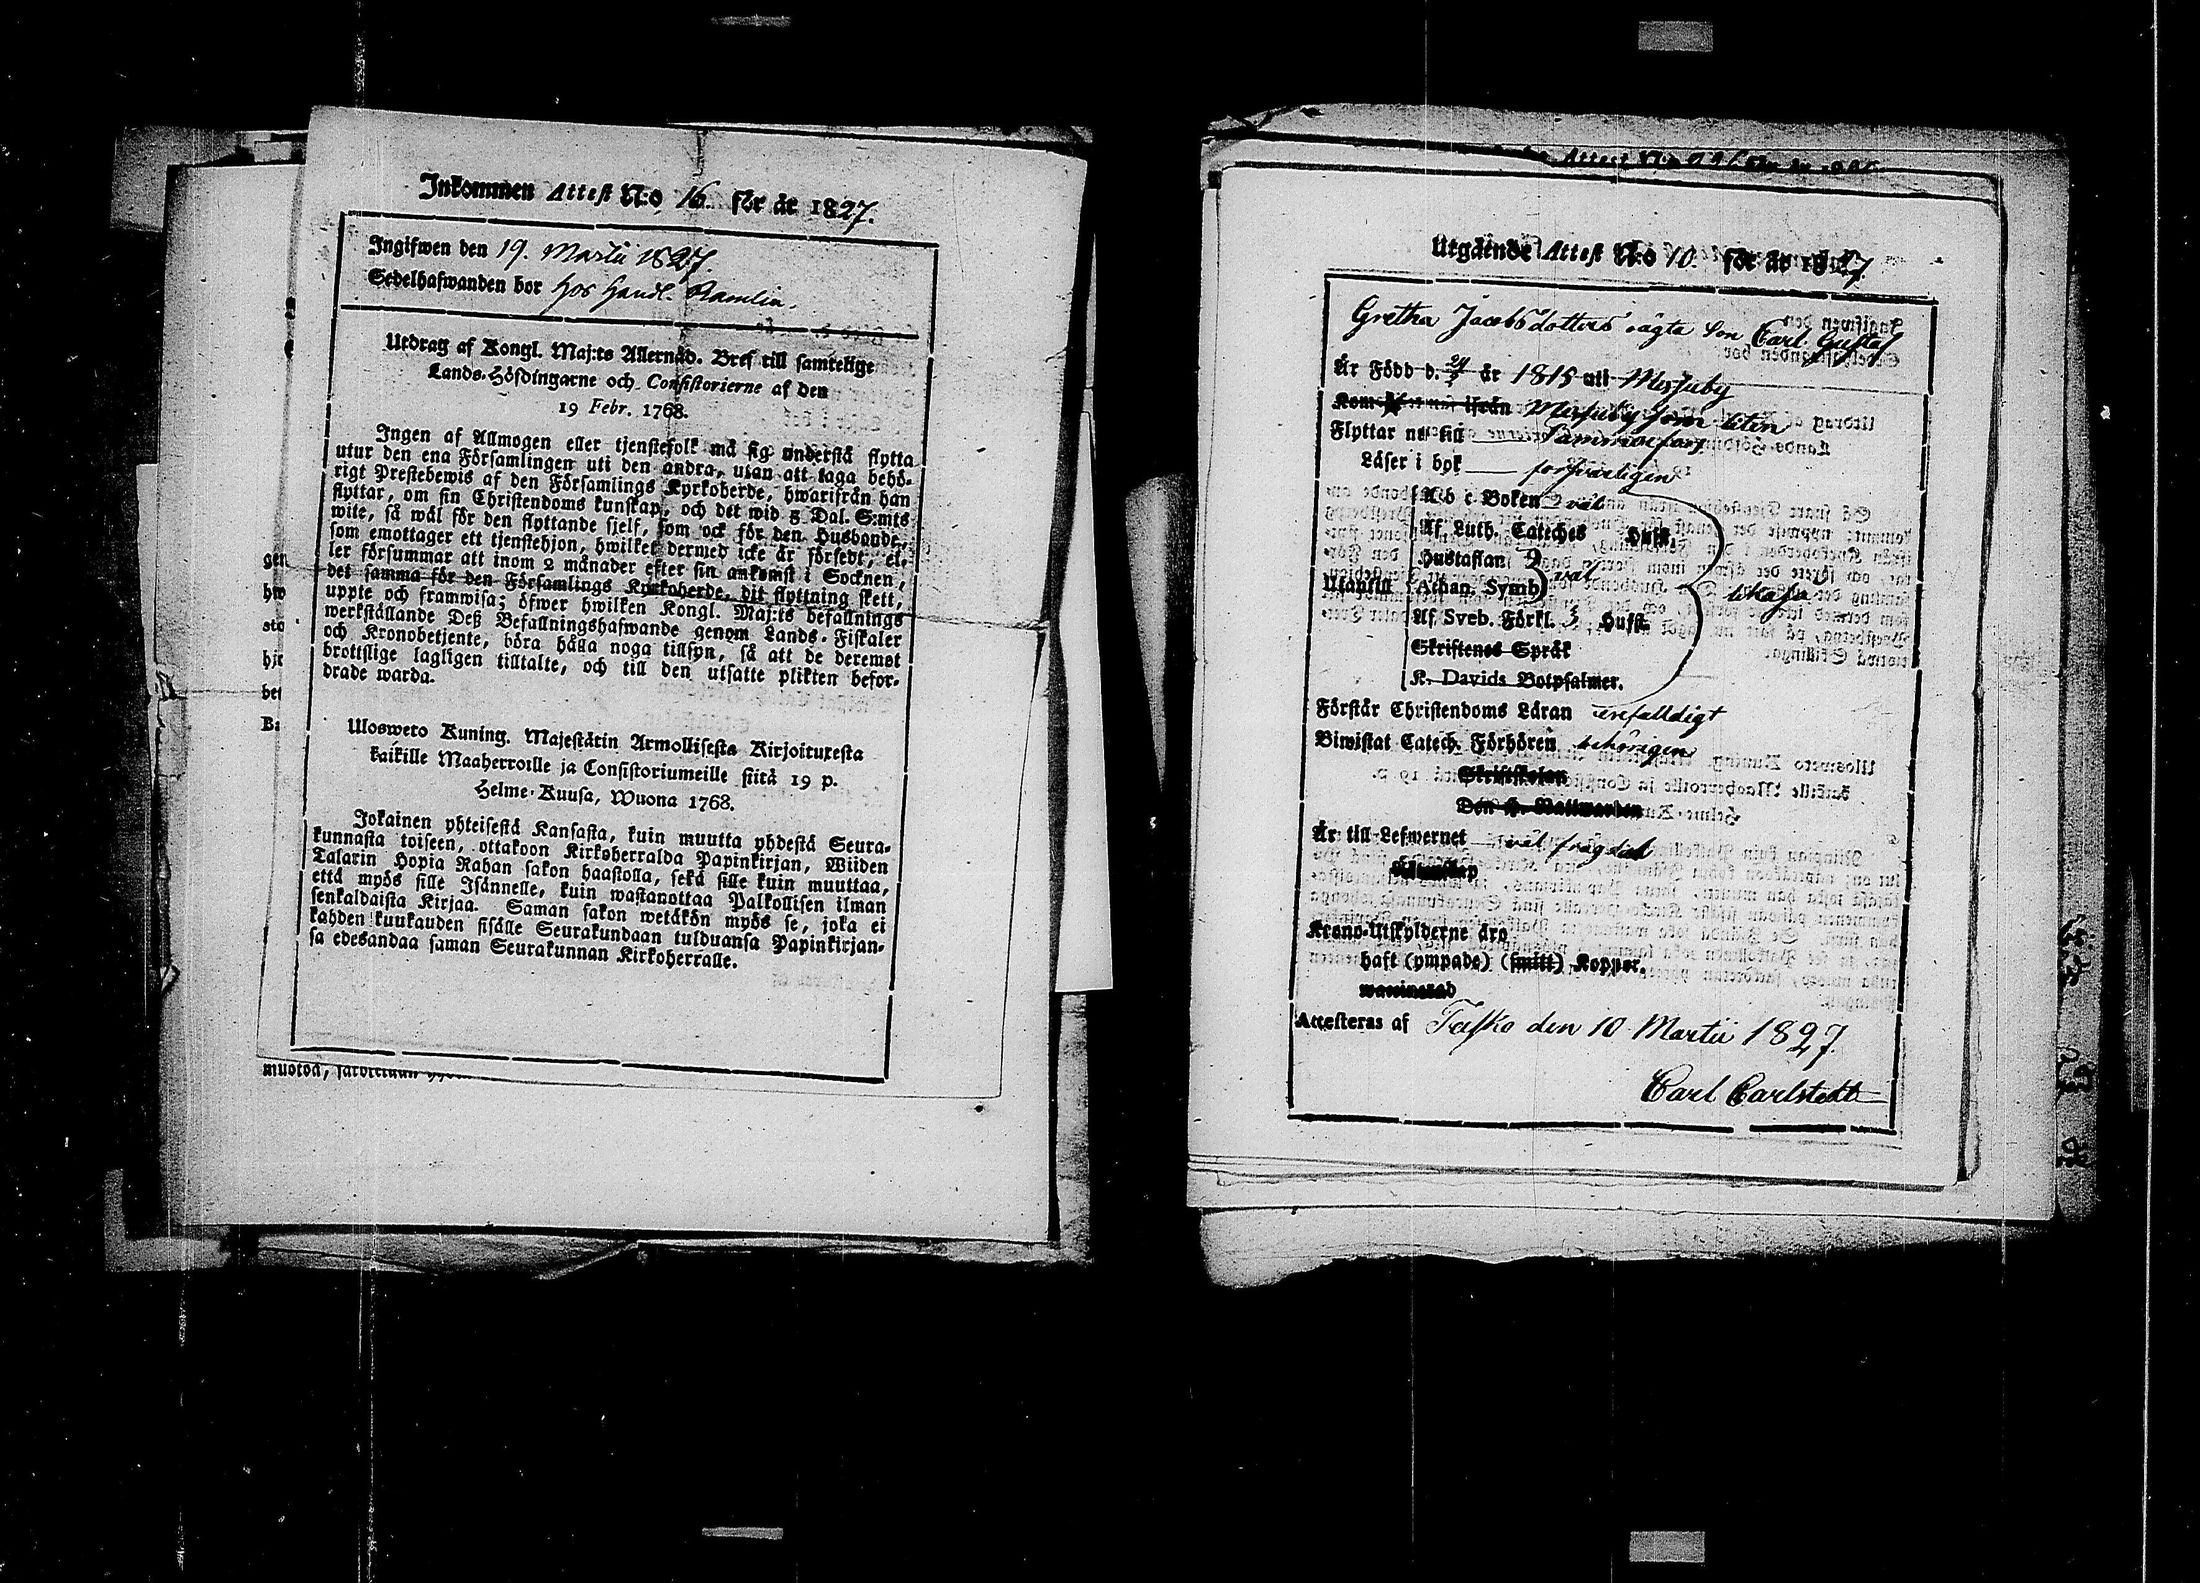 Inkommen Attest N:o 16. för år 1827.
Ingifwen den 19. Martii 1827.
Sedelhafwanden bor hos Handl. Ramlin.
Utdrag af Kongl. Maj:ts Allernåd. Bref till samtelige
Lands-Höfdingarne och Consistorierne af den
19 Febr. 1768.
Ingen af Allmogen eller tjenstefolk må sig understå flytta
utur den ena Församlingen uti den andra, utan att taga behö-
rigt Prestebewis af den Församlings Kyrkoherde, hwarifrån han
flyttar, om sin Christendoms kunskap, och det wid 5 Dal. S:mts
wite, så wäl för den flyttande sjelf, som ock för den Husbonde,
som emottager ett tjenstehjon, hwilket dermed icke är försedt, el-
ler försummar att inom 2 månader efter sin ankomst i Socknen,
det samma för den Församlings Kyrkoherde, dit flyttning skett,
uppte och framwisa; öfwer hwilken Kongl. Maj:ts befallnings
werkställande Deß Befallningshafwande genom Lands-Fiskaler
och Kronobetjente, böra hålla noga tillsyn, så att de deremot
brottslige lagligen tilltalte, och till den utsatte plikten befor-
drade warda.
Ulosweto Kuning. Majestätin Armollisesta Kirjoituresta
kaikille Maaherroille ja Consistoriumeille siitä 19 p.
Helme-Kuusa, Wuona 1768.
Jokainen yhteisestä Kansasta, kuin muutta yhdestä Seura-
kunnasta toiseen, ottakoon Kirkoherralda Papinkirjan, Wiiden
Talarin Hopia Rahan sakon haastolla, sekä sille kuin muuttaa,
että myös sille Isännelle, kuin wastanottaa Palkollisen ilman
senkaldaista Kirjaa. Saman sakon wetäkön myös se, joka ei
kahden kuukauden sisälle Seurakundaan tulduansa Papinkirjan-
sa edesandaa saman Seurakunnan Kirkoherralle.
Utgående Attest N:o 10. för år 1827
Gretha Jacobsdotters oägta Son Carl Gustaf
Är Född d. år 1815 uti
Kom ifrån som liten
Flyttar nu till
Läser i bok försvarligen
A b c Boken väl
Af Luth. Cateches Hufst.
Hustaflan
Utantill Athan. Symb. väl
Af Sveb. Förkl. 3 Hufst.
Skriftenes Språk
K. Davids Botpsalmer.
Förstår Christendoms Läran enfalldigt
Biwistat Catech. Förhören behörigen
Skriftskolan
Den H. Nattwarden
Är till Lefwernet väl frägdad
Krono-Utskylderne äro
haft (ympade) (smitt) Koppor.
Attesteras af den 10 Martii 1827.
Carl Carlstedt